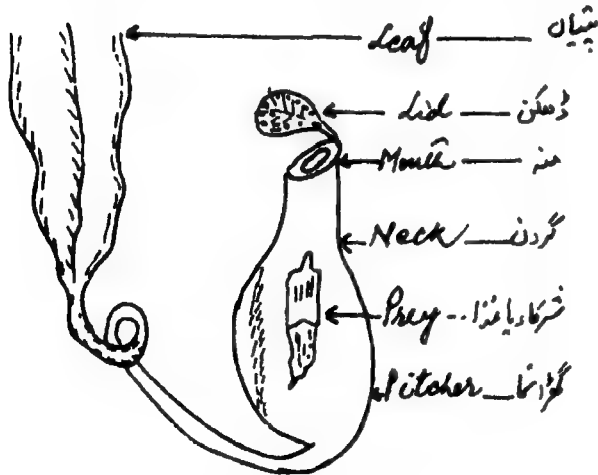 Leaf پتیاں
Lid ڈھکن
Mouth منہ
Neck گردن
Prey شکار یا غذا
Pitcher گھڑا نما